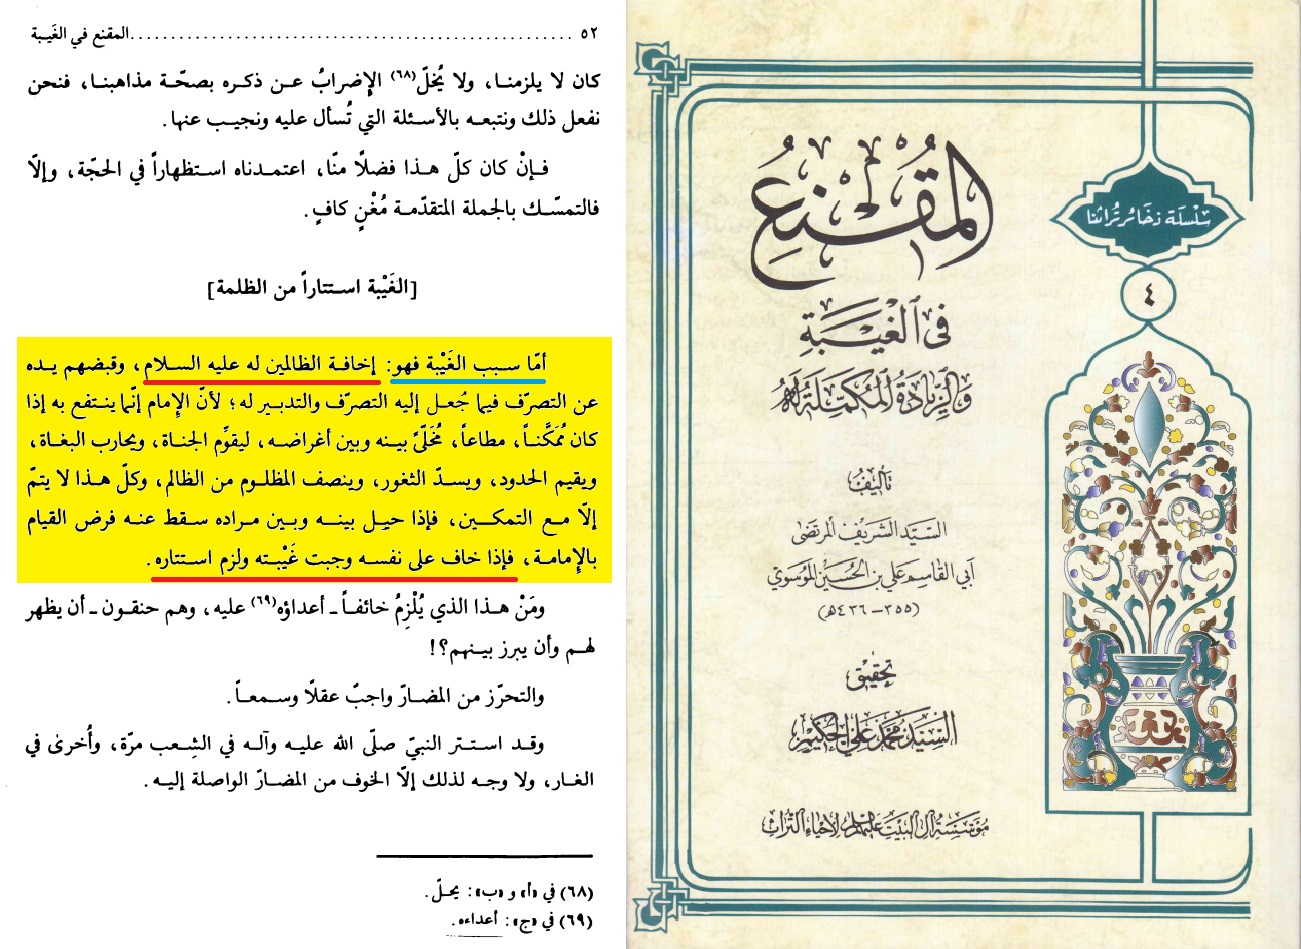 ٥٢ ......................................................المقنع في الغَيبة
كان لا يلزمنا، ولا يُخلّ(٦٨) الإِضرابُ عن ذكره بصحّة مذاهبنا، فنحن
نفعل ذلك ونتبعه بالأسئلة التي تُسأل عليه ونجيب عنها.
فإنْ كان كلّ هذا فضلًا منّا، اعتمدناه استظهاراً في الحجّة، وإلّا
فالتمسّك بالجملة المتقدّمة مُغْنٍ كافٍ.
[الغَيْبة استتاراً من الظلمة]
أمّا سبب الغَيْبة فهو: إخافة الظالمين له عليه السلام، وقبضهم يده
عن التصرّف فيما جُعل إليه التصرّف والتدبير له؛ لأنّ الإِمام إنّما ينتفع به إذا
كان مُمَكَّناً، مطاعاً، مُخَلّىً بينه وبين أغراضه، ليقوِّم الجناة، ويحارب البغاة،
ويقيم الحدود، ويسدّ الثغور، وينصف المظلوم من الظالم، وكلّ هذا لا يتمّ
إلّا مع التمكين، فإذا حيل بينه وبين مراده سقط عنه فرض القيام
بالإِمامة، فإذا خاف على نفسه وجبت غَيْبته ولزم استتاره.
ومَنْ هذا الذي يُلْزِمُ خائفاً ـ أعداؤه(٦٩) عليه، وهم حنقون ـ أن يظهر
لهم وأن يبرز بينهم؟!
والتحرّز من المضارّ واجبٌ عقلًا وسمعاً.
وقد استتر النبيّ صلّى الله عليه وآله في الشِعب مرّة، وأُخرى في
الغار، ولا وجه لذلك إلّا الخوف من المضارّ الواصلة إليه.
(٦٨) في «أ» و «ب»: يحلّ.
(٦٩) في «ج»: أعداءه.
سلسلة ذخائر تراثنا
٤
المُقْنِعُ
في الغَيْبَةِ
والزِّيادَةُ المُكَمِّلَةُ لَهُ
تأليف
السيّد الشريف المرتضى
أبي القاسم علي بن الحُسَين الموسوي
(٣٥٥ - ٤٣٦هـ)
تحقيق
السيّد محمّد علي الحكيم
مؤسّسة آل البيت عليهم السلام لإحياء التراث